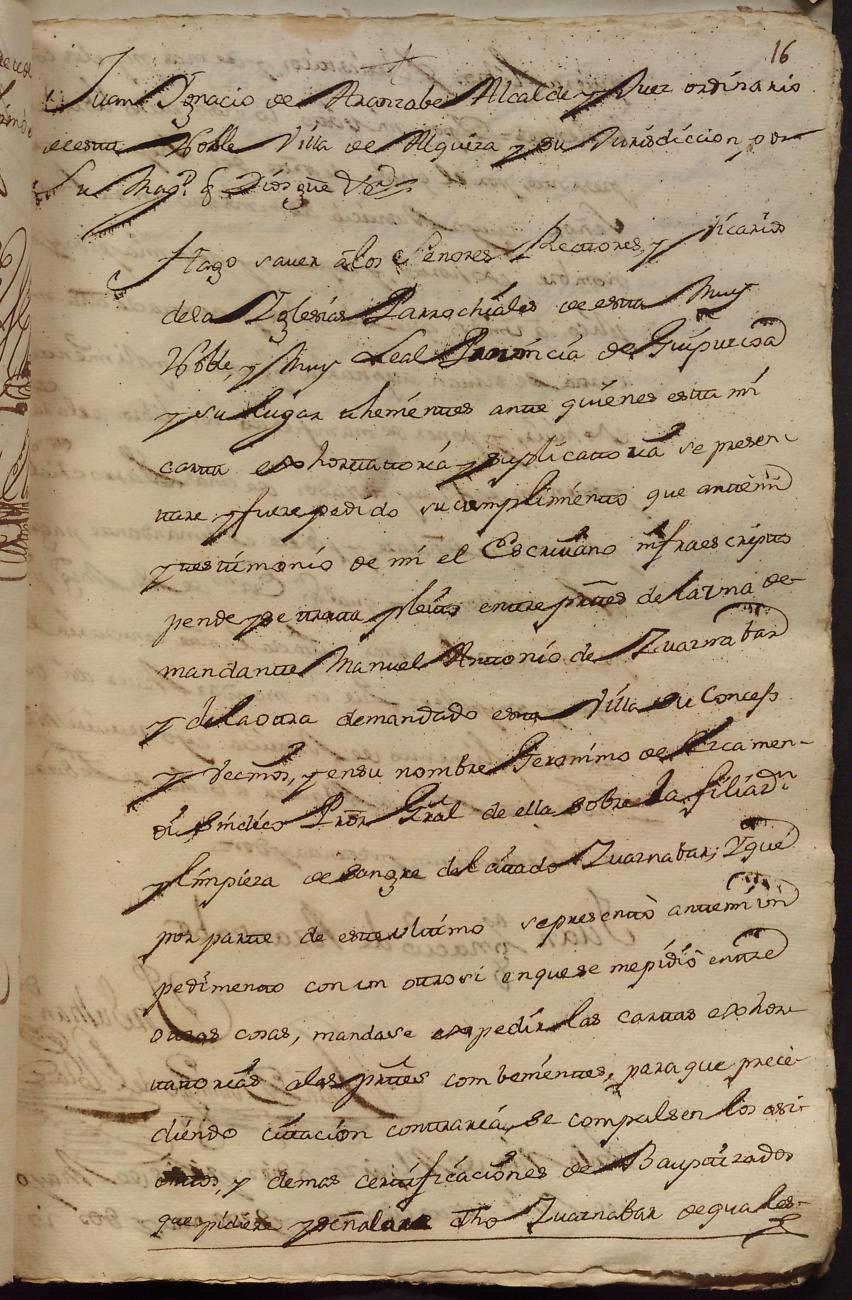 16
Juan Ygnacio de Aranzabe Alcalde y Juez ordinario
de esta Noble Villa de Alquiza y su Jurisdiccion, por
Su Magd. q Dios gūe Vª
Hago saver â los Señores Rectores, y Vicarios
dela Yglesias Parrochiales de esta Muy
Noble, y Muy Leal Provincia de Guipuzcoa
y su lugar thenientes ante quienes esta mi
carta exhortatoria y suplicatoria se presen-
tare y fuere pedido su cumplimiento que antemi
y testimonio de mi el Escrivano infraescripto
pende y se trata pleito entre prtes de la vna de-
mandante Manuel Antonio de Zuarnabar
y de la otra demandado esta Villa su Concejo
y Vecinos, y en su nombre Geronimo de Arcamen-
di Sindico Pror Gral de ella sobre la filiazn
y limpieza de sangre del citado Zuarnabar; Y que
por parte de este vltimo se presentò antemi vn
pedimento con un otrosi en que se me pidiò entre
otras cosas, mandase expedir las cartas exhor-
tatorias â las prtes combenientes, para que prece-
diendo citacion contraria, se compulsen los asi-
entos, y demas certificaciones de Bauptizados
que pidiere y señalare dho Zuarnabar de quales-